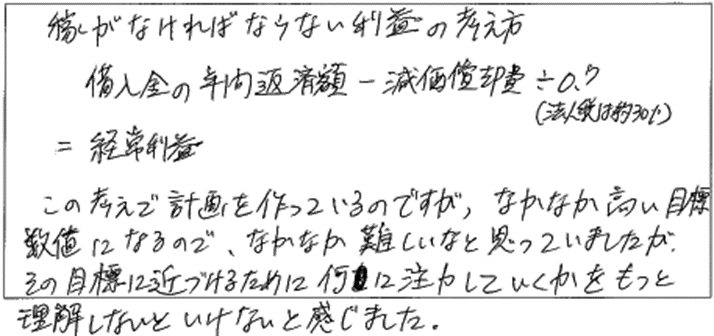 稼がなければならない利益の考え方
借入金の年間返済額－減価償却費÷0.7
(法人税は約30%)
＝経常利益
この考えで計画を作っているのですが、なかなか高い目標
数値になるので、なかなか難しいなと思っていましたが、
その目標に近づけるために何に注力していくかをもっと
理解しないといけないと感じました。